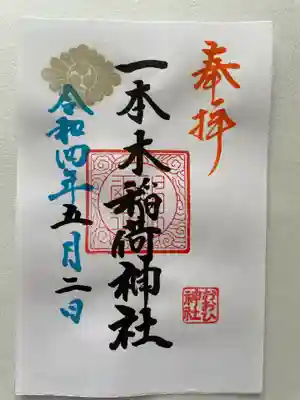 奉拝
一本木稲荷神社
令和四年五月二日
神社